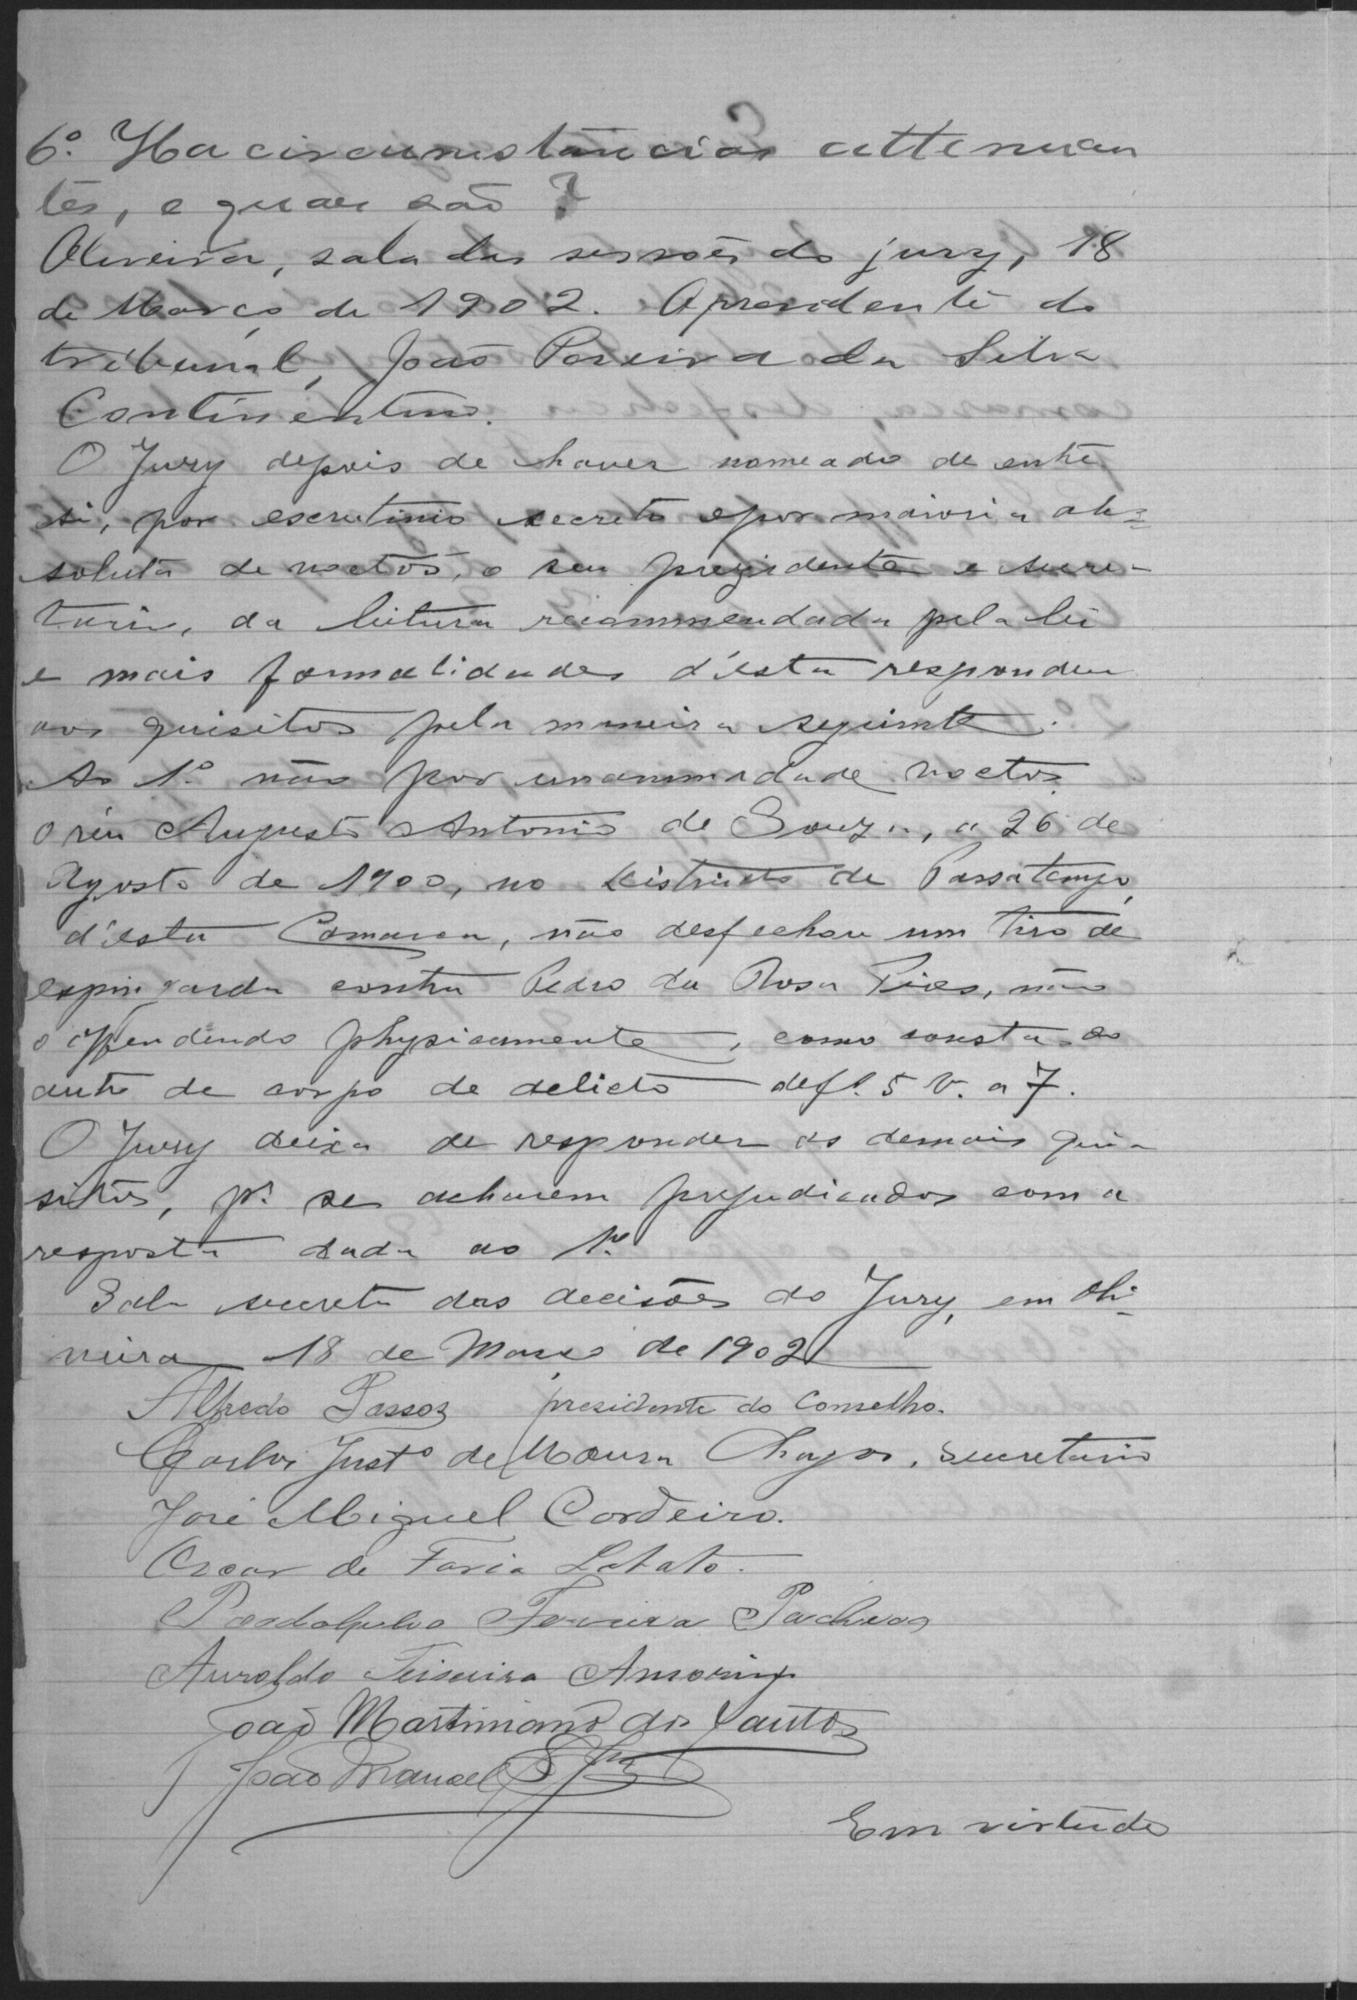 6º. Ha circumstancias attenuan
tes, e quaes são?
Oliveira, sala das sessões do jury, 18
de Março de 1902. O presidente do
tribunal, João Pereira da Silva
Continentino.
O Jury depois de haver nomeado de entre
si, por escrutinio secreto e por maioria ab=
soluta de voctos, o seu prezidente e secre-
tario, da leitura recommendada pela lei
e mais formalidades d'esta respondeu
aos quisitos pela maneira seguinte.
Ao 1º não por unanimidade voctos.
o réu Augusto Antonio de Souza, a 26 de
Agosto de 1900, no districto de Passatempo,
d'esta Comarca, não desfechou um tiro de
espingarda contra Pedro da Rosa Pires, não
o offendendo physicamente, como consta do
auto de corpo de delicto de fl. 5 v. a 7.
O Jury deixa de responder os demais qui-
sitos, pr. se acharem prejudicados com a
resposta dada ao 1º.
Sala secreta das decisões do Jury, em Oli-
veira 18 de Março de 1902
Alfredo Passos presidente do Conselho.
Carlos Justo de Moura Chagas, secretario
José Miguel Cordeiro.
Oscar de Faria Lobato.
Ferreira Pacheco
Teixeira Amorim
João Martiniano dos Santos
João Manoel
Em virtude